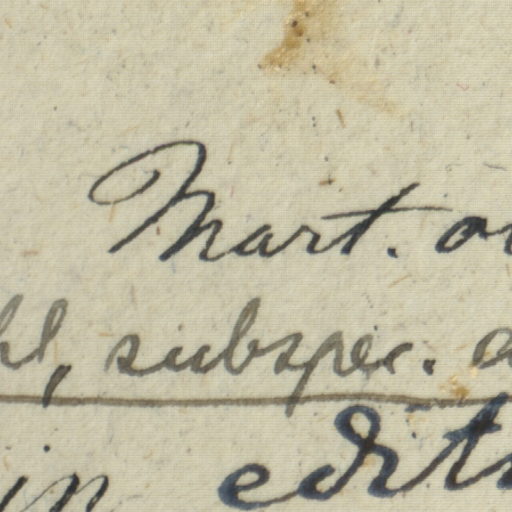 Mart. o
hl, subspec. a
in edit